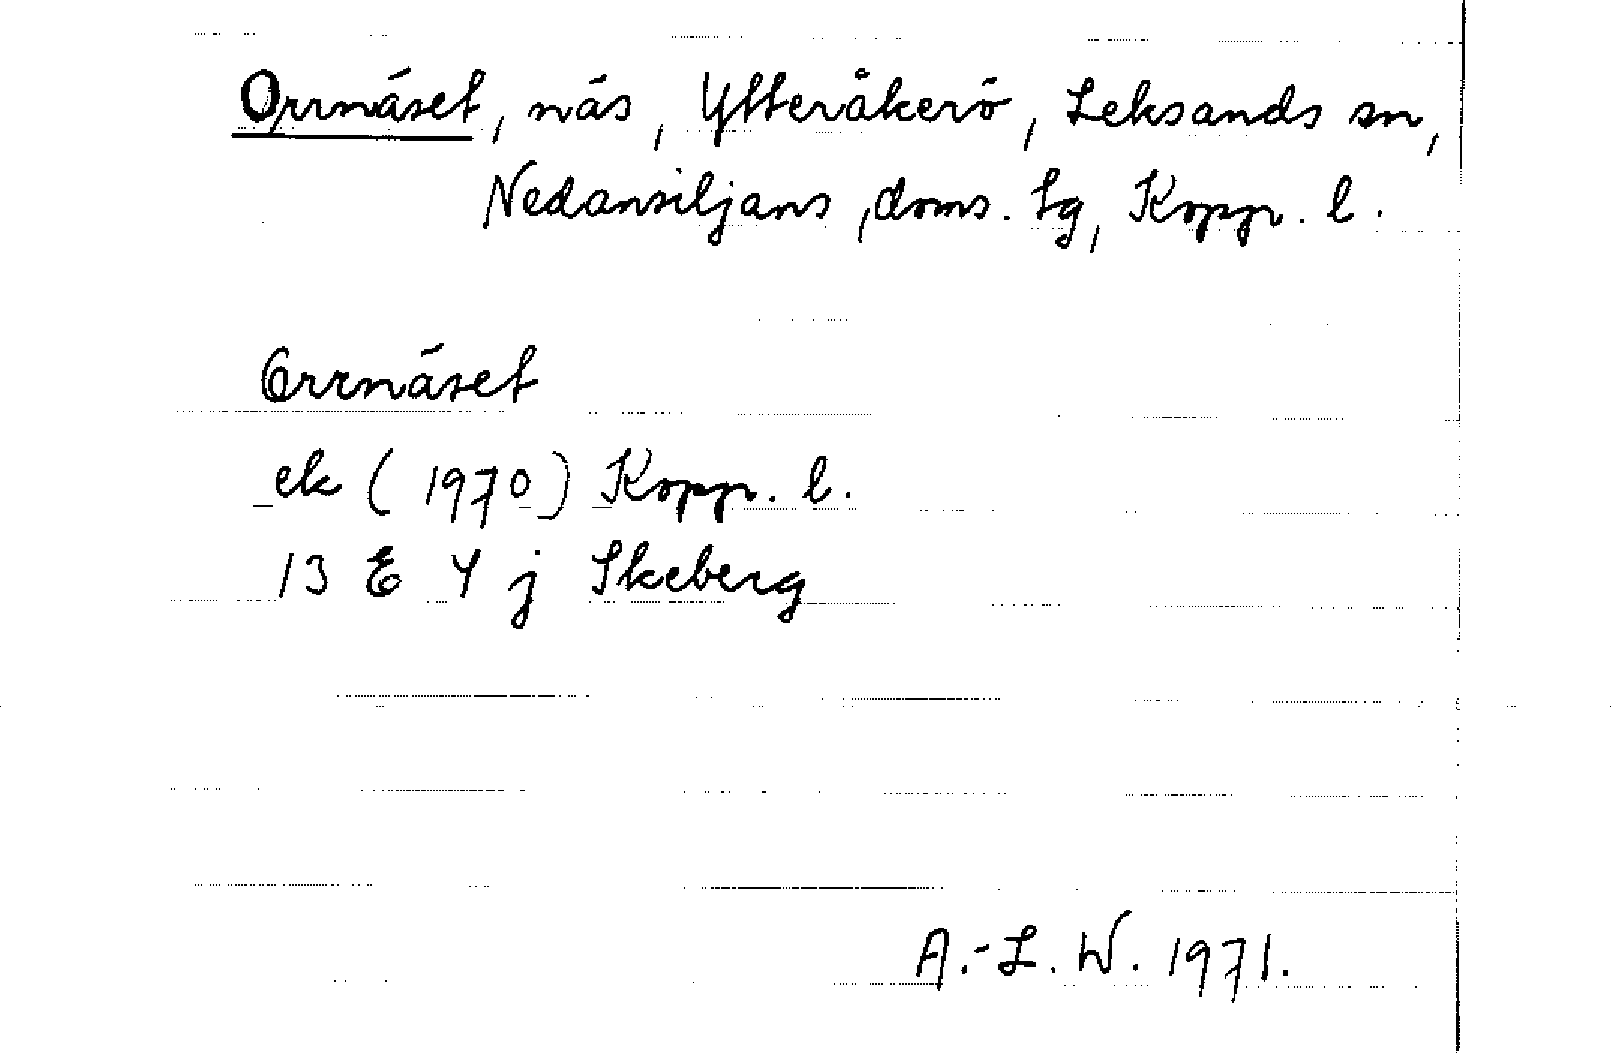 Orrnäset, näs, Ytteråkerö, Leksands sn,
Nedansiljans, doms. tg, Kopp. l.
Orrnäset
ek (1970) Kopp. l.
13 E 4 j Skeberg
A.-L. W. 1971.